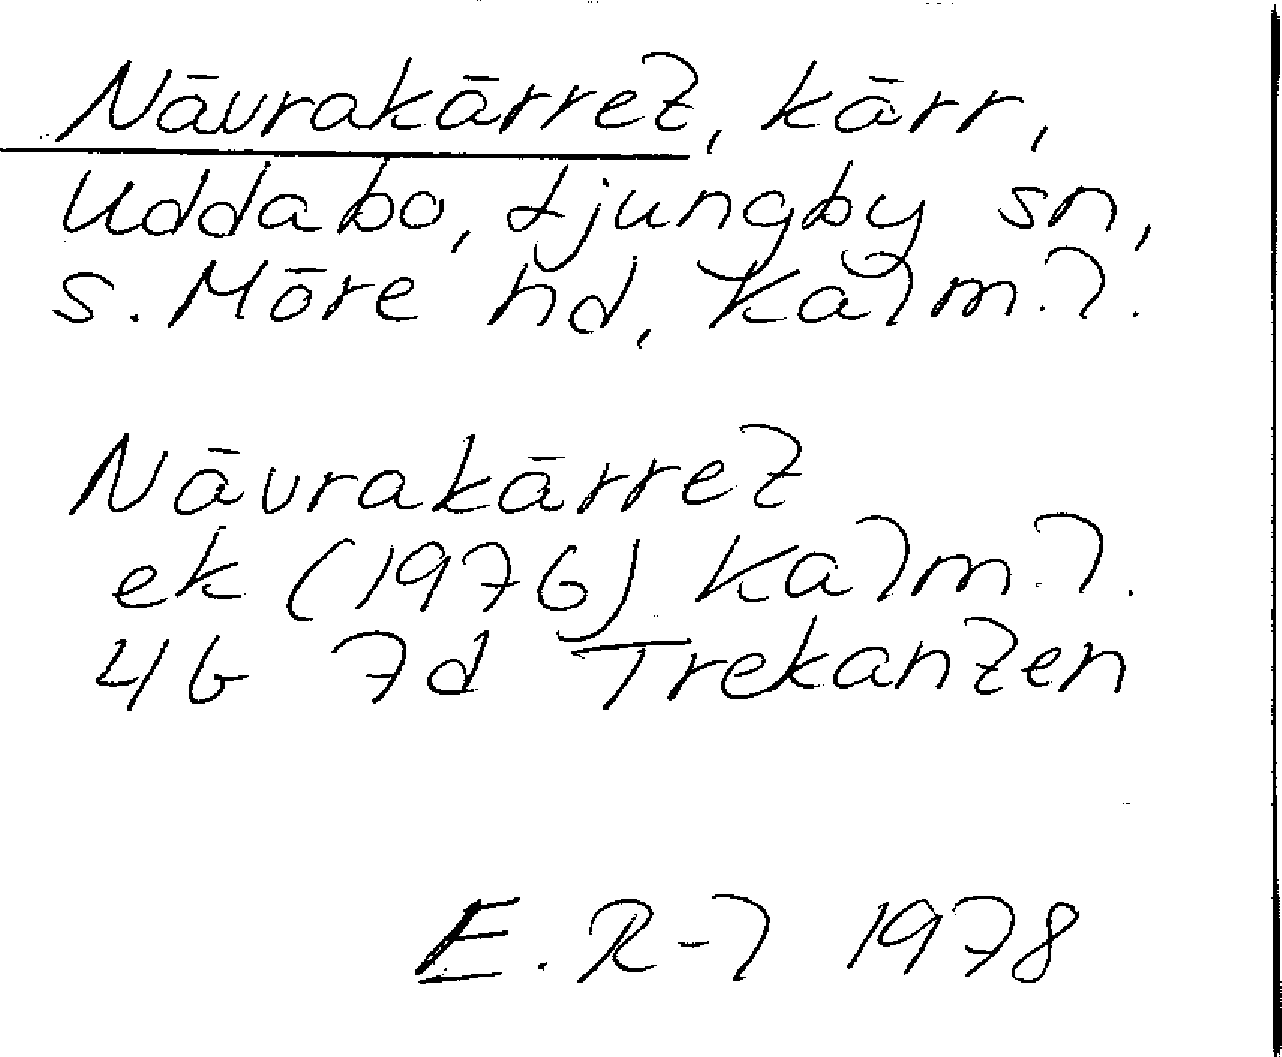 Nävrakärret, kärr,
Uddabo, Ljungby sn,
S. Möre hd, Kalm. l.
Nävrakärret
ek (1976) Kalm. l.
4G 7d Trekanten
E. R-l 1978